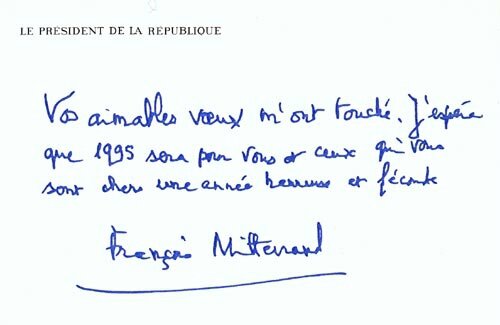 LE PRÉSIDENT DE LA RÉPUBLIQUE
Vos aimables vœux m'ont touché. J'espère
que 1995 sera pour vous et ceux qui vous
sont chers une année heureuse et féconde
François Mitterrand